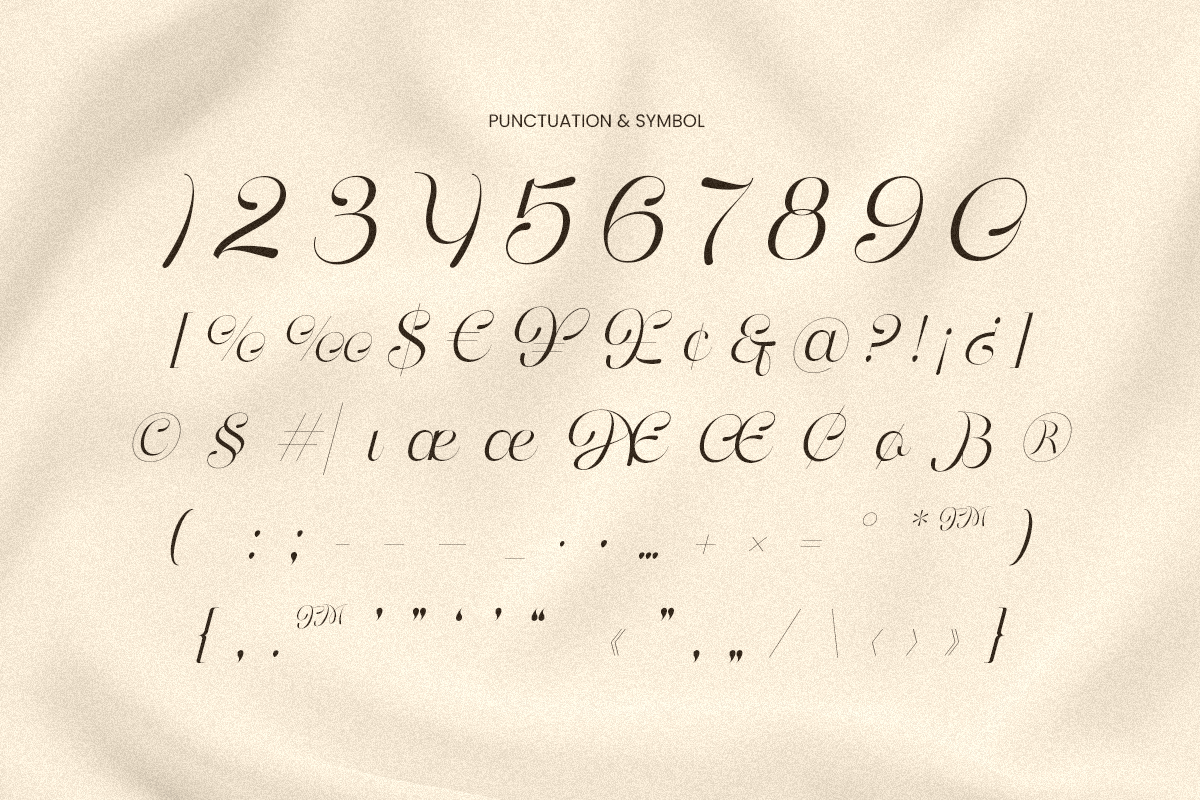 PUNCTUATION & SYMBOL
1 2 3 4 5 6 7 8 9 0
[ % ‰ $ € ¥ £ ¢ & @ ? ! ¡ ¿ ]
© § # | ı æ œ Æ Œ Ø ø ß ®
( : ; - – — _ · • … + × = ° * ™ )
{ , . ™ ' " ‘ ’ “ « ” ‚ „ / \ ‹ › » }